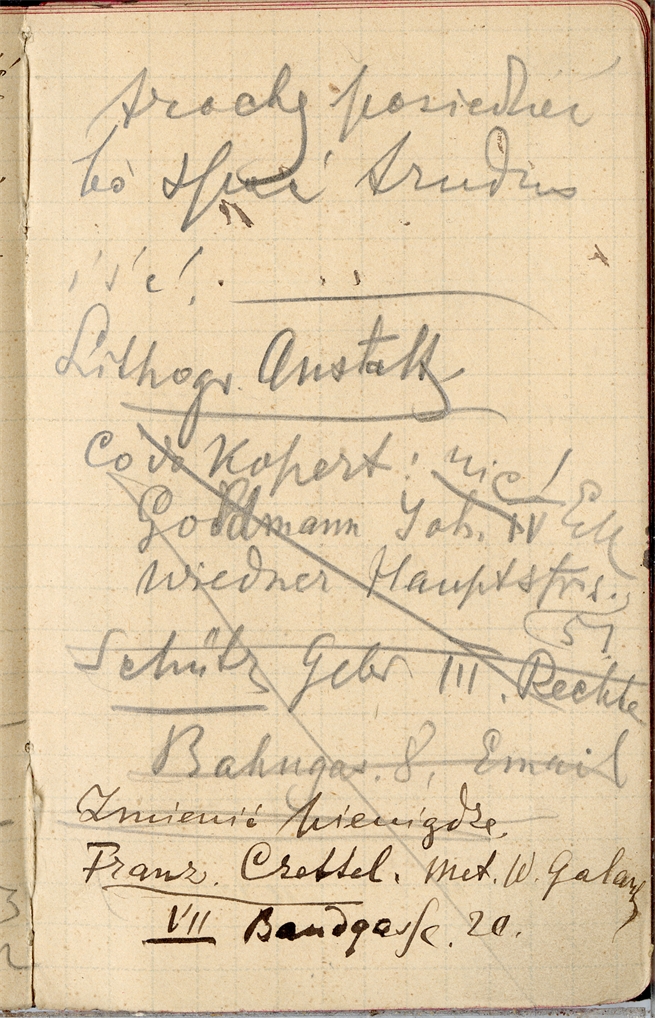 trochę posiedzieć
bo spać trudno
iść!
Lithogr. Anstalt
Co do Kopert: nic!
Goldmann Joh. IV Eck
Wiedner Hauptstrs.
51
Schütz Gebr III. Rechte
Bahngas. 8, Email
Zmienić pieniądze.
Franz. Czettel. Met. W. Galanz
VII Bandgasse. 20.